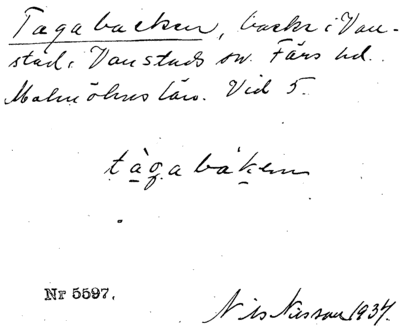 Tagabacken, backe i Van-
stad, Vanstads sn. Färs hd.
Malmöhus län. Vid 5.
tàgabákenn
Nr 5597.
Nils Nilsson 1934.